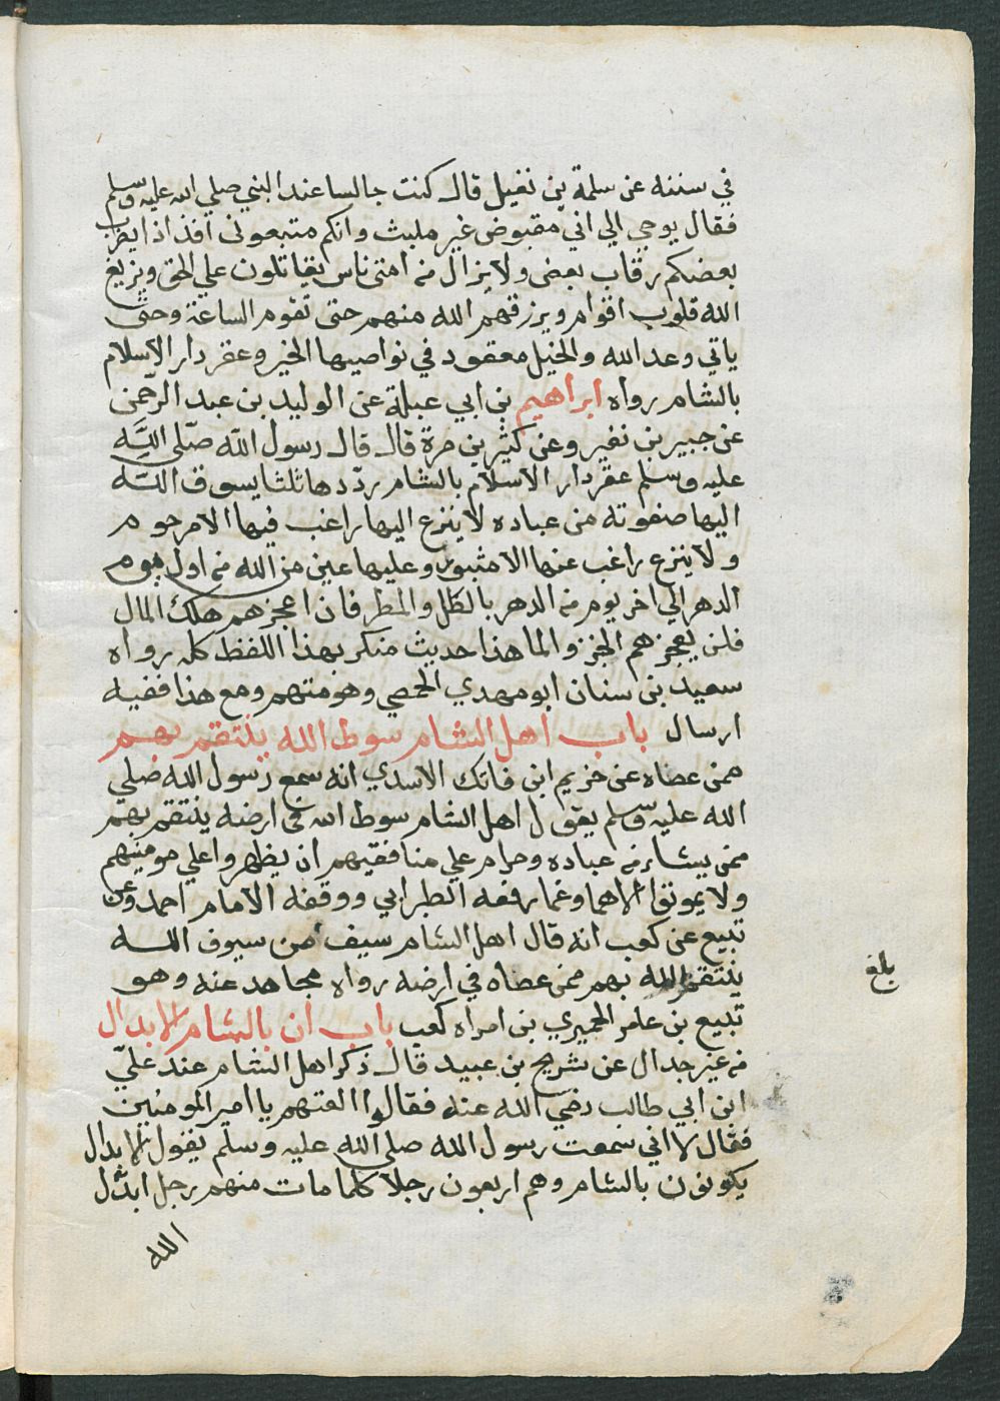 في سننه عن سلمة بن نفيل قال كنت جالسا عند النبي صلي الله عليه وسلم
فقال يوحي الي اني مقبوض غير ملبث وانكم متبعوني افذاذا يضرب
بعضكم رقاب بعض ولا يزال من امتي ناس يقاتلون علي الحق ويزيغ
الله قلوب اقوام ويرزقهم الله منهم حتى تقوم الساعة وحتى
ياتي وعد الله والخيل معقود في نواصيها الخير وعقر دار الاسلام
بالشام رواه ابراهيم بن ابي عبلة عن الوليد بن عبد الرحمن
عن جبير بن نفير وعن كثير بن مرة قال قال رسول الله صلى الله
عليه وسلم عقر دار الاسلام بالشام رددها ثلثا يسوق الله
اليها صفوته من عباده لا ينزع اليها راغب فيها الا مرحوم
ولا ينزع راغب عنها الا مثبور وعليها عين من الله من اول يوم
الدهر الي اخر يوم من الدهر بالظل والمطر فان اعجزهم هلك المال
فلن يعجزهم الخبز والما هذا حديث منكر بهذا اللفظ كله رواه
سعيد بن سنان ابو مهدي الحمصي وهو متهم ومع هذا ففيه
ارسال باب اهل الشام سوط الله ينتقم بهم
ممن عصاه عن خريم ابن فاتك الاسدي انه سمع رسول الله صلي
الله عليه وسلم يقول اهل الشام سوط الله في ارضه ينتقم بهم
ممن يشاء من عباده وحرام علي منافقيهم ان يظهروا علي مومنيهم
ولا يموتوا الا هما وغما رفعه الطبراني ووقفه الامام احمد وعن
تبيع عن كعب انه قال اهل الشام سيف من سيوف الله
ينتقم الله بهم ممن عصاه في ارضه رواه مجاهد عنه وهو
تبيع بن عامر الحميري بن امراه كعب باب ان بالشام الابدال
من غير جدال عن شريح بن عبيد قال ذكر اهل الشام عند علي
ابن ابي طالب رضي الله عنه فقالوا العنهم يا امير المومنين
فقال لا اني سمعت رسول الله صلى الله عليه وسلم يقول الابدال
يكونون بالشام وهم اربعون رجلا كلما مات منهم رجل ابدل
الله
بلغ